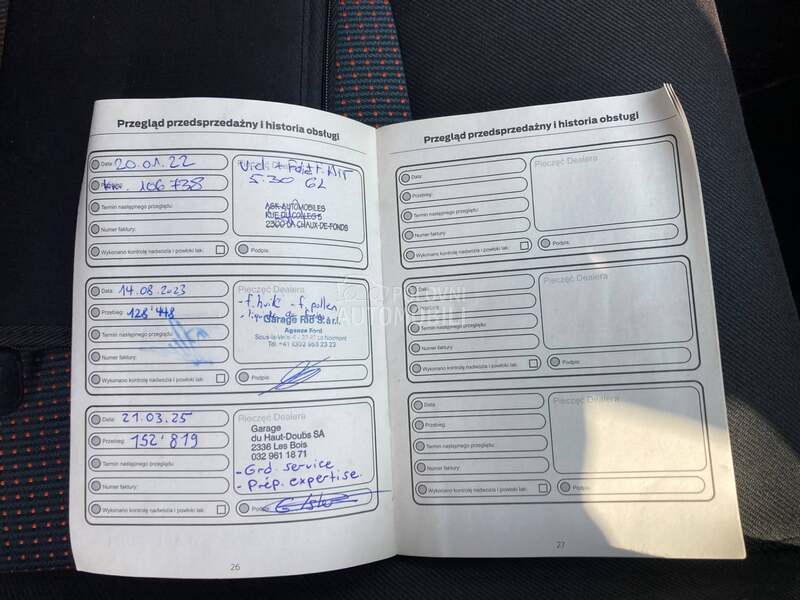 Przegląd przedsprzedażny i historia obsługi
Data: 20.01.22
km. 106 738
Termin następnego przeglądu:
Numer faktury:
Wykonano kontrolę nadwozia i powłoki lak.
Vid. + Filtr. Air
5.30 6L
ASK AUTOMOBILES
2300 LA CHAUX-DE-FONDS
Podpis:
Data: 14.08.2023
Przebieg: 128'448
Termin następnego przeglądu:
Numer faktury:
Wykonano kontrolę nadwozia i powłoki lak.
Pieczęć Dealera
- f. huile - f. pollen
- liquide de frein
Garage Rio S.à r.l.
Agence Ford
Tél. +41 (0)32 953 23 23
Podpis:
Data: 21.03.25
Przebieg: 152'819
Termin następnego przeglądu:
Numer faktury:
Wykonano kontrolę nadwozia i powłoki lak.
Pieczęć Dealera
Garage
du Haut-Doubs SA
2336 Les Bois
032 961 18 71
- Grd. service
- Prép. expertise.
Podpis:
26
Przegląd przedsprzedażny i historia obsługi
Data:
Przebieg:
Termin następnego przeglądu:
Numer faktury:
Wykonano kontrolę nadwozia i powłoki lak.
Pieczęć Dealera
Podpis:
Data:
Przebieg:
Termin następnego przeglądu:
Numer faktury:
Wykonano kontrolę nadwozia i powłoki lak.
Pieczęć Dealera
Podpis:
Data:
Przebieg:
Termin następnego przeglądu:
Numer faktury:
Wykonano kontrolę nadwozia i powłoki lak.
Pieczęć Dealera
Podpis:
27
POLOVNI
AUTOMOBILI